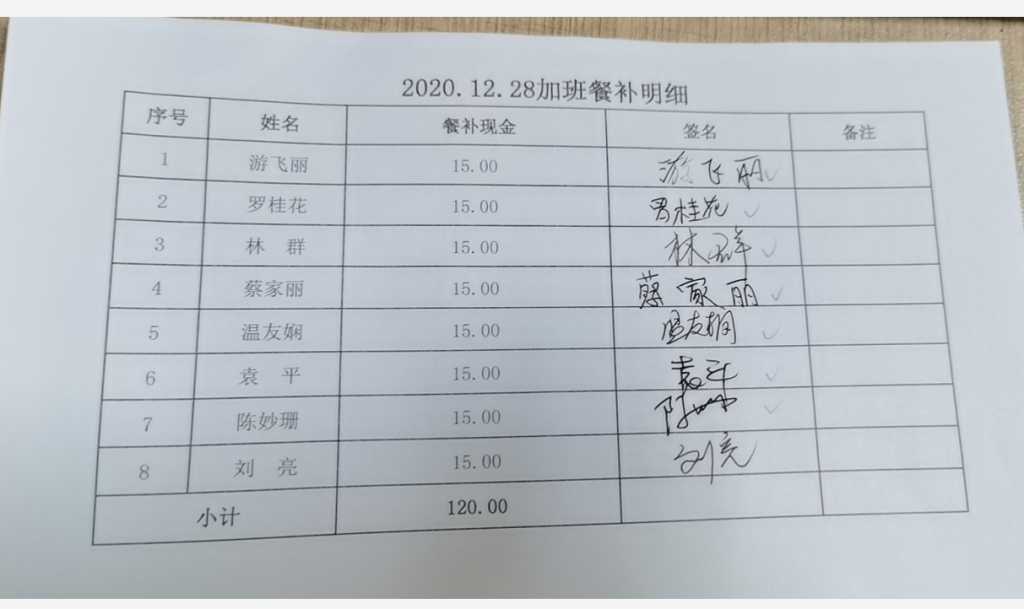 2020.12.28加班餐补明细
序号 姓名 餐补现金 签名 备注
1 游飞丽 15.00 游飞丽
2 罗桂花 15.00 罗桂花
3 林 群 15.00 林群
4 蔡家丽 15.00 蔡家丽
5 温友娴 15.00 温友娴
6 袁 平 15.00 袁平
7 陈妙珊 15.00
8 刘 亮 15.00 刘亮
小计 120.00